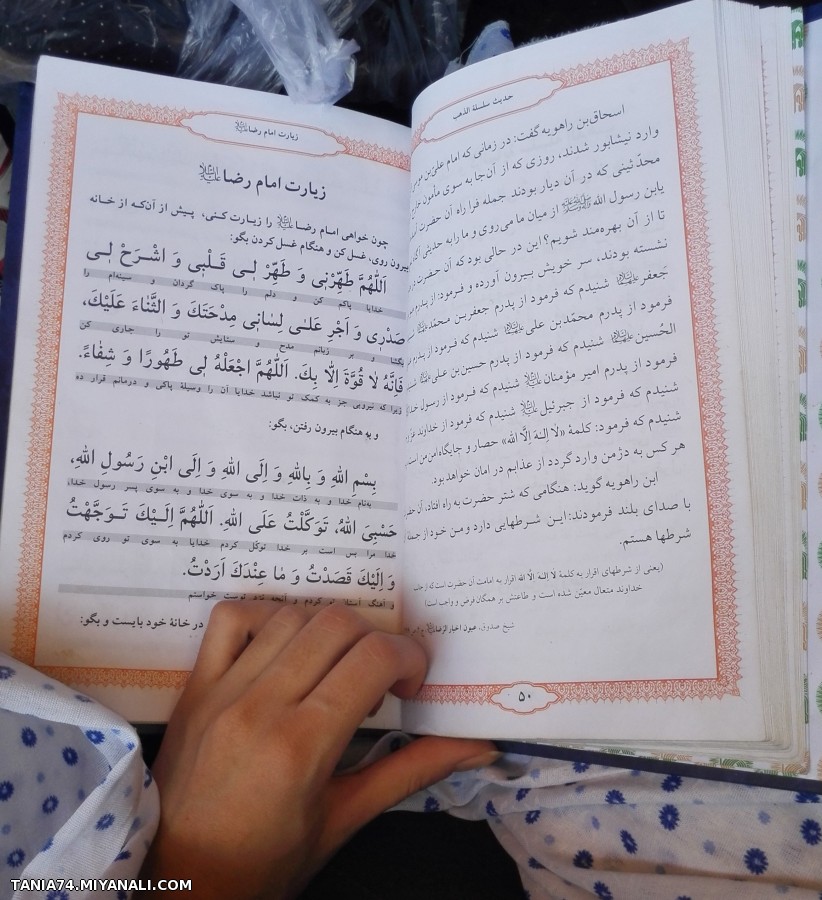 حدیث سلسلة الذهب
اسحاق‌بن راهویه گفت: در زمانی که امام علی‌بن
وارد نیشابور شدند، روزی که از آن‌جا به سوی مأمون
محدّثینی که در آن دیار بودند جمله فرا راه آن حضرت
یابن رسول الله ﷺ از میان ما می‌روی و ما را به حدیثی
تا از آن بهره‌مند شویم؟ این در حالی بود که آن حضرت در
نشسته بودند، سر خویش بیرون آورده و فرمود: از پدرم
جعفر علیه‌السلام شنیدم که فرمود از پدرم جعفربن محمّد
فرمود از پدرم محمّدبن علی علیه‌السلام شنیدم که فرمود از پدرم
الحُسین علیه‌السلام شنیدم که فرمود از پدرم حسین‌بن علی
فرمود از پدرم امیر مؤمنان علیه‌السلام شنیدم که فرمود از رسول خدا
شنیدم که فرمود از جبرئیل علیه‌السلام شنیدم که فرمود از خداوند
شنیدم که فرمود: کلمهٔ «لَا اِلـٰهَ اِلَّا الله» حصار و جایگاه امن من است
هر کس به دژ من وارد گردد از عذابم در امان خواهد بود.
ابن راهویه گوید: هنگامی که شتر حضرت به راه افتاد، آن
با صدای بلند فرمودند: این شرطهایی دارد و من خود از جملهٔ
شرطها هستم.
(یعنی از شرطهای اقرار به کلمهٔ لا اِلـٰهَ اِلَّا الله اقرار به امامت آن حضرت است که از
خداوند متعال معیّن شده است و طاعتش بر همگان فرض و واجب است)
شیخ صدوق، عیون اخبار الرضا
۵۰
زیارت امام رضا علیه‌السلام
زیارت امام رضا علیه‌السلام
چون خواهی امام رضا علیه‌السلام را زیارت کنی، پیش از آن‌که از خانه
بیرون روی، غسل کن و هنگام غسل کردن بگو:
اَللّٰهُمَّ طَهِّرْنِی وَ طَهِّرْ لِی قَلْبِی وَ اشْرَحْ لِی
خدایا پاکم کن و دلم را پاک گردان و سینه‌ام را
صَدْرِی وَ اَجْرِ عَلـٰی لِسٰانِی مِدْحَتَکَ وَ الثَّنٰاءَ عَلَیْکَ،
بگشا و بر زبانم مدح و ستایش تو را جاری کن
فَاِنَّهُ لٰا قُوَّةَ اِلّٰا بِکَ. اَللّٰهُمَّ اجْعَلْهُ لِی طَهُورًا وَ شِفٰاءً.
زیرا که نیرویی جز به کمک تو نباشد خدایا آن را وسیلهٔ پاکی و درمانم قرار ده
و به هنگام بیرون رفتن، بگو:
بِسْمِ اللهِ وَ بِاللهِ وَ اِلَی اللهِ وَ اِلَی ابْنِ رَسُولِ اللهِ،
به‌نام خدا و به ذات خدا و به سوی خدا و به سوی پسر رسول خدا،
حَسْبِیَ اللهُ، تَوَکَّلْتُ عَلَی اللهِ. اَللّٰهُمَّ اِلَـیْکَ تَـوَجَّهْتُ
خدا مرا بس است بر خدا توکّل کردم خدایا به سوی تو روی کردم
وَ اِلَیْکَ قَصَدْتُ وَ مٰا عِنْدَکَ اَرَدْتُ.
و آهنگ آستان تو کردم و آنچه نزد توست خواستم
در خانهٔ خود بایست و بگو:
TANIA74.MIYANALI.COM